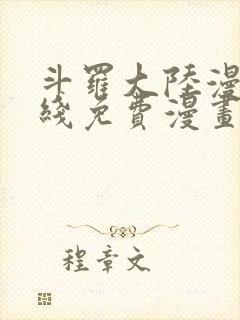 斗羅大陸漫
綫免費漫畫
程章文